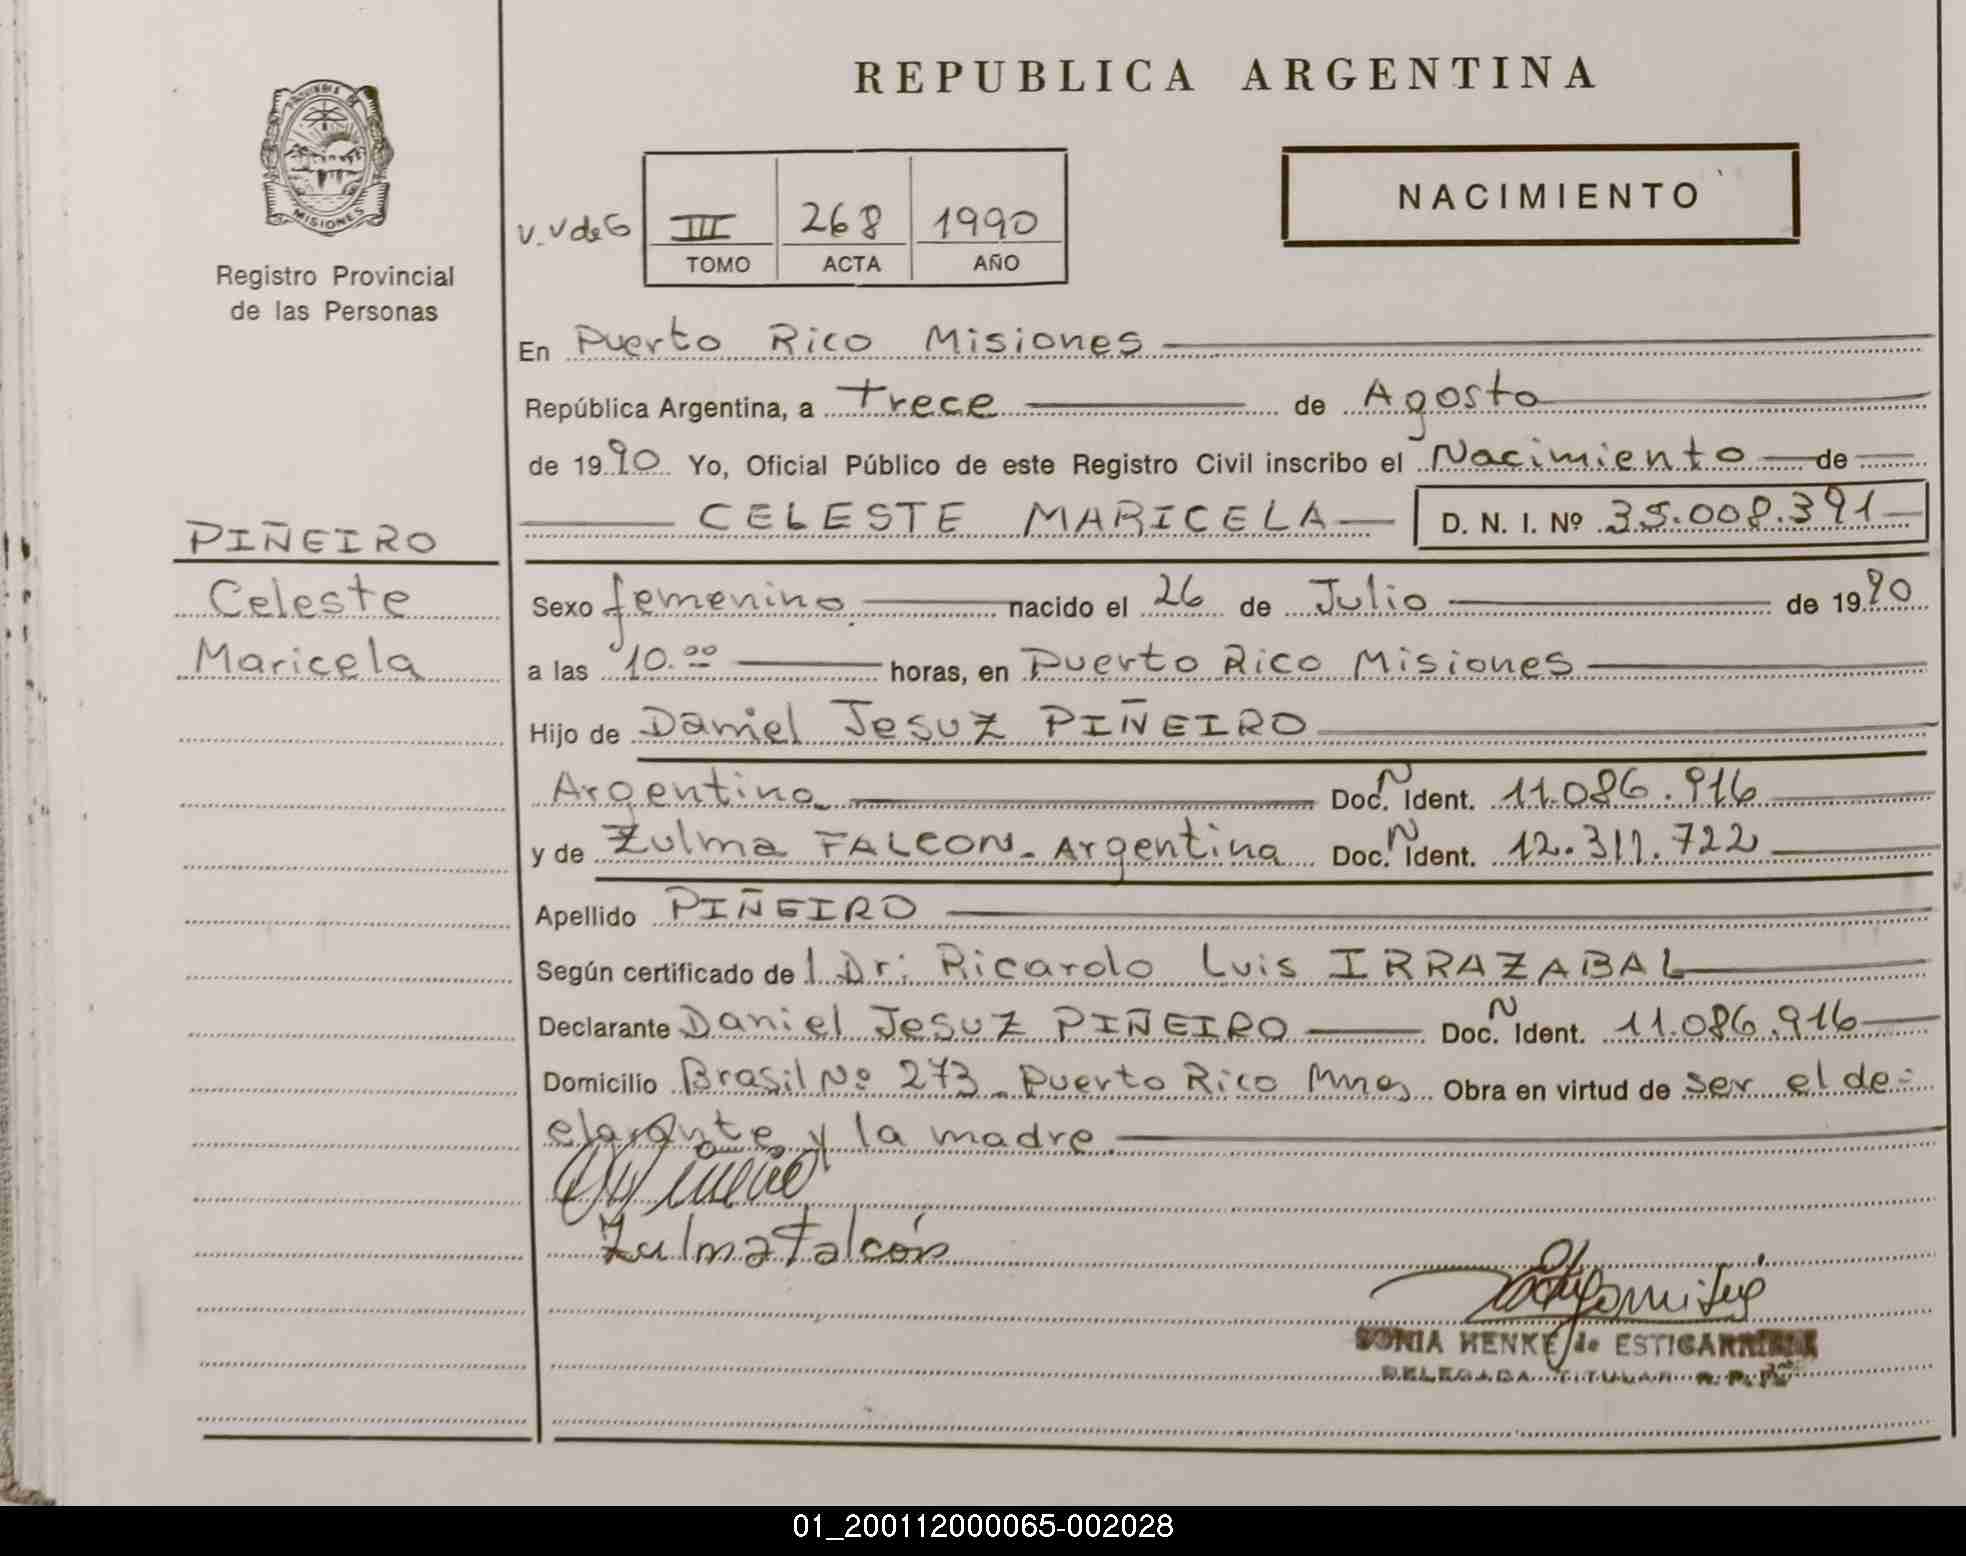 REPUBLICA ARGENTINA
PROVINCIA DE
MISIONES
Registro Provincial
de las Personas
NACIMIENTO
V. V de G
III 268 1990
TOMO ACTA AÑO
En Puerto Rico Misiones
República Argentina, a Trece de Agosto
de 1990 Yo, Oficial Público de este Registro Civil inscribo el Nacimiento de
CELESTE MARICELA D. N. I. Nº 35.008.391
PIÑEIRO
Celeste
Maricela
Sexo femenino nacido el 26 de Julio de 1990
a las 10.00 horas, en Puerto Rico Misiones
Hijo de Daniel Jesuz PIÑEIRO
Argentino Doc. N Ident. 11.086.916
y de Zulma FALCON - Argentina Doc. N Ident. 12.311.722
Apellido PIÑEIRO
Según certificado de l Dr: Ricardo Luis IRRAZABAL
Declarante Daniel Jesuz PIÑEIRO Doc. N Ident. 11.086.916
Domicilio Brasil Nº 273 - Puerto Rico Mnes Obra en virtud de ser el de-
clarante y la madre.
Zulma Falcón
SONIA HENKE de ESTIGARRIBIA
DELEGADA TITULAR R. P.
01_200112000065-002028